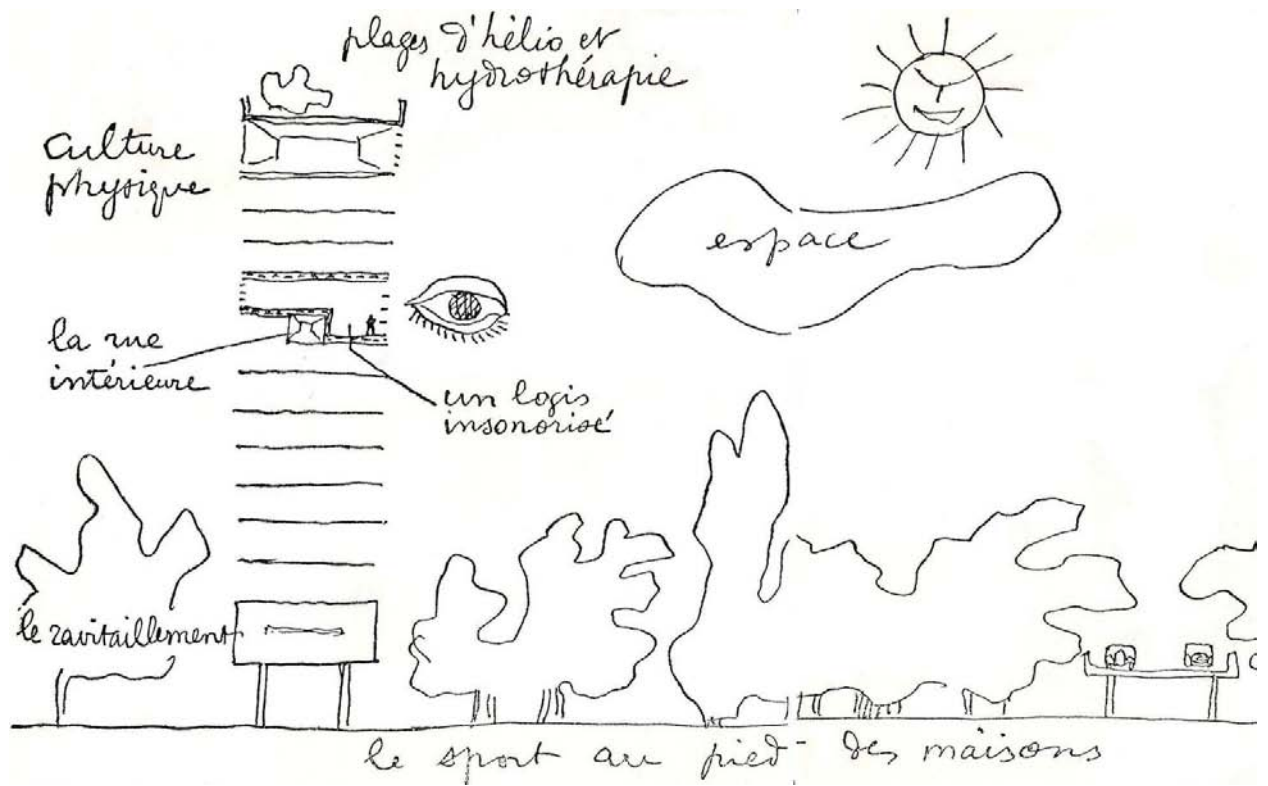 plages d'hélio et
hydrothérapie
culture
physique
espace
la rue
intérieure
un logis
insonorisé
le ravitaillement
le sport au pied - des maisons